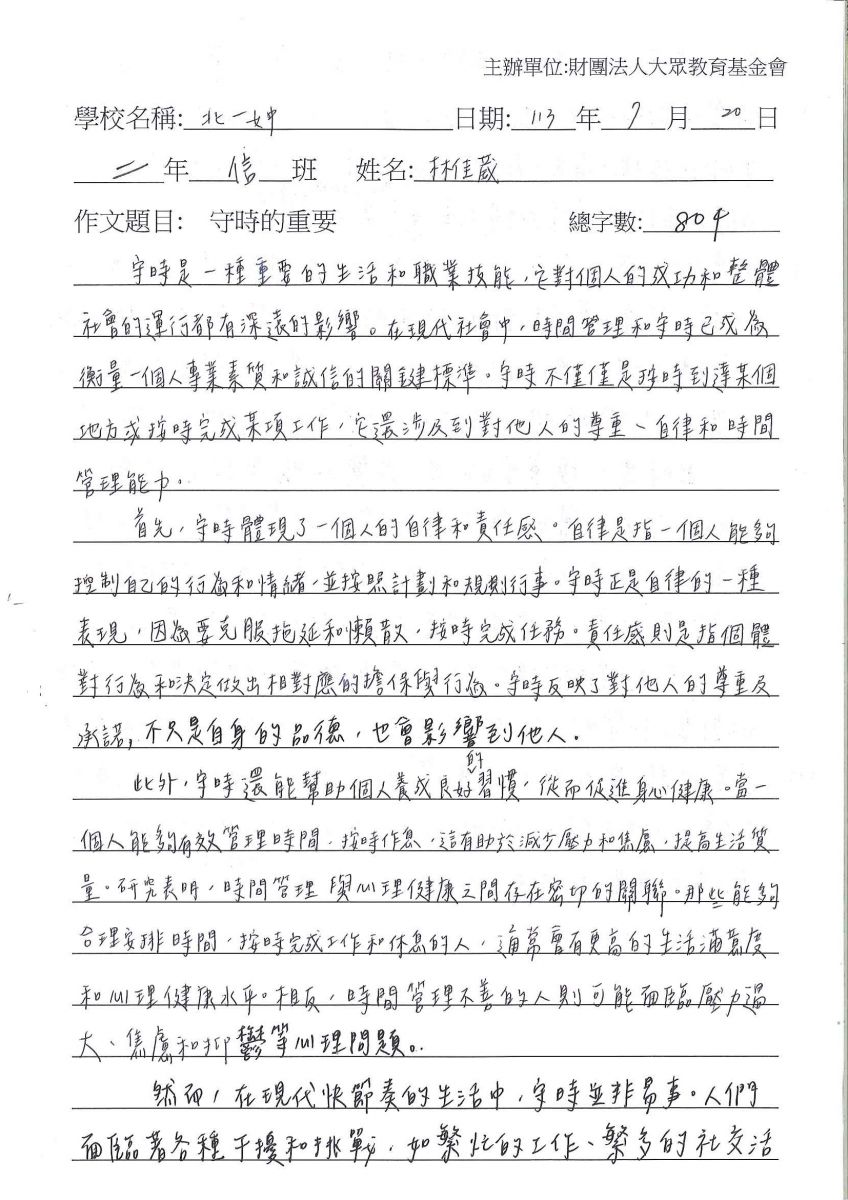 主辦單位:財團法人大眾教育基金會
學校名稱: 北一女中 日期: 113 年 7 月 20 日
二 年 信 班 姓名: 林佳葳
作文題目: 守時的重要 總字數: 804
守時是一種重要的生活和職業技能,它對個人的成功和整體
社會的運行都有深遠的影響。在現代社會中,時間管理和守時已成為
衡量一個人專業素質和誠信的關鍵標準。守時不僅僅是按時到達某個
地方或按時完成某項工作,它還涉及到對他人的尊重、自律和時間
管理能力。
首先,守時體現了一個人的自律和責任感。自律是指一個人能夠
控制自己的行為和情緒,並按照計劃和規則行事。守時正是自律的一種
表現,因為要克服拖延和懶散,按時完成任務。責任感則是指個體
對行為和決定做出相對應的擔保與行為。守時反映了對他人的尊重及
承諾,不只是自身的品德,也會影響到他人。
此外,守時還能幫助個人養成良好的習慣,從而促進身心健康。當一
個人能夠有效管理時間,按時作息,這有助於減少壓力和焦慮,提高生活質
量。研究表明,時間管理與心理健康之間存在密切的關聯。那些能夠
合理安排時間,按時完成工作和休息的人,通常會有更高的生活滿意度
和心理健康水平。相反,時間管理不善的人則可能面臨壓力過
大、焦慮和抑鬱等心理問題。
然而,在現代快節奏的生活中,守時並非易事。人們
面臨著各種干擾和挑戰,如繁忙的工作、繁多的社交活